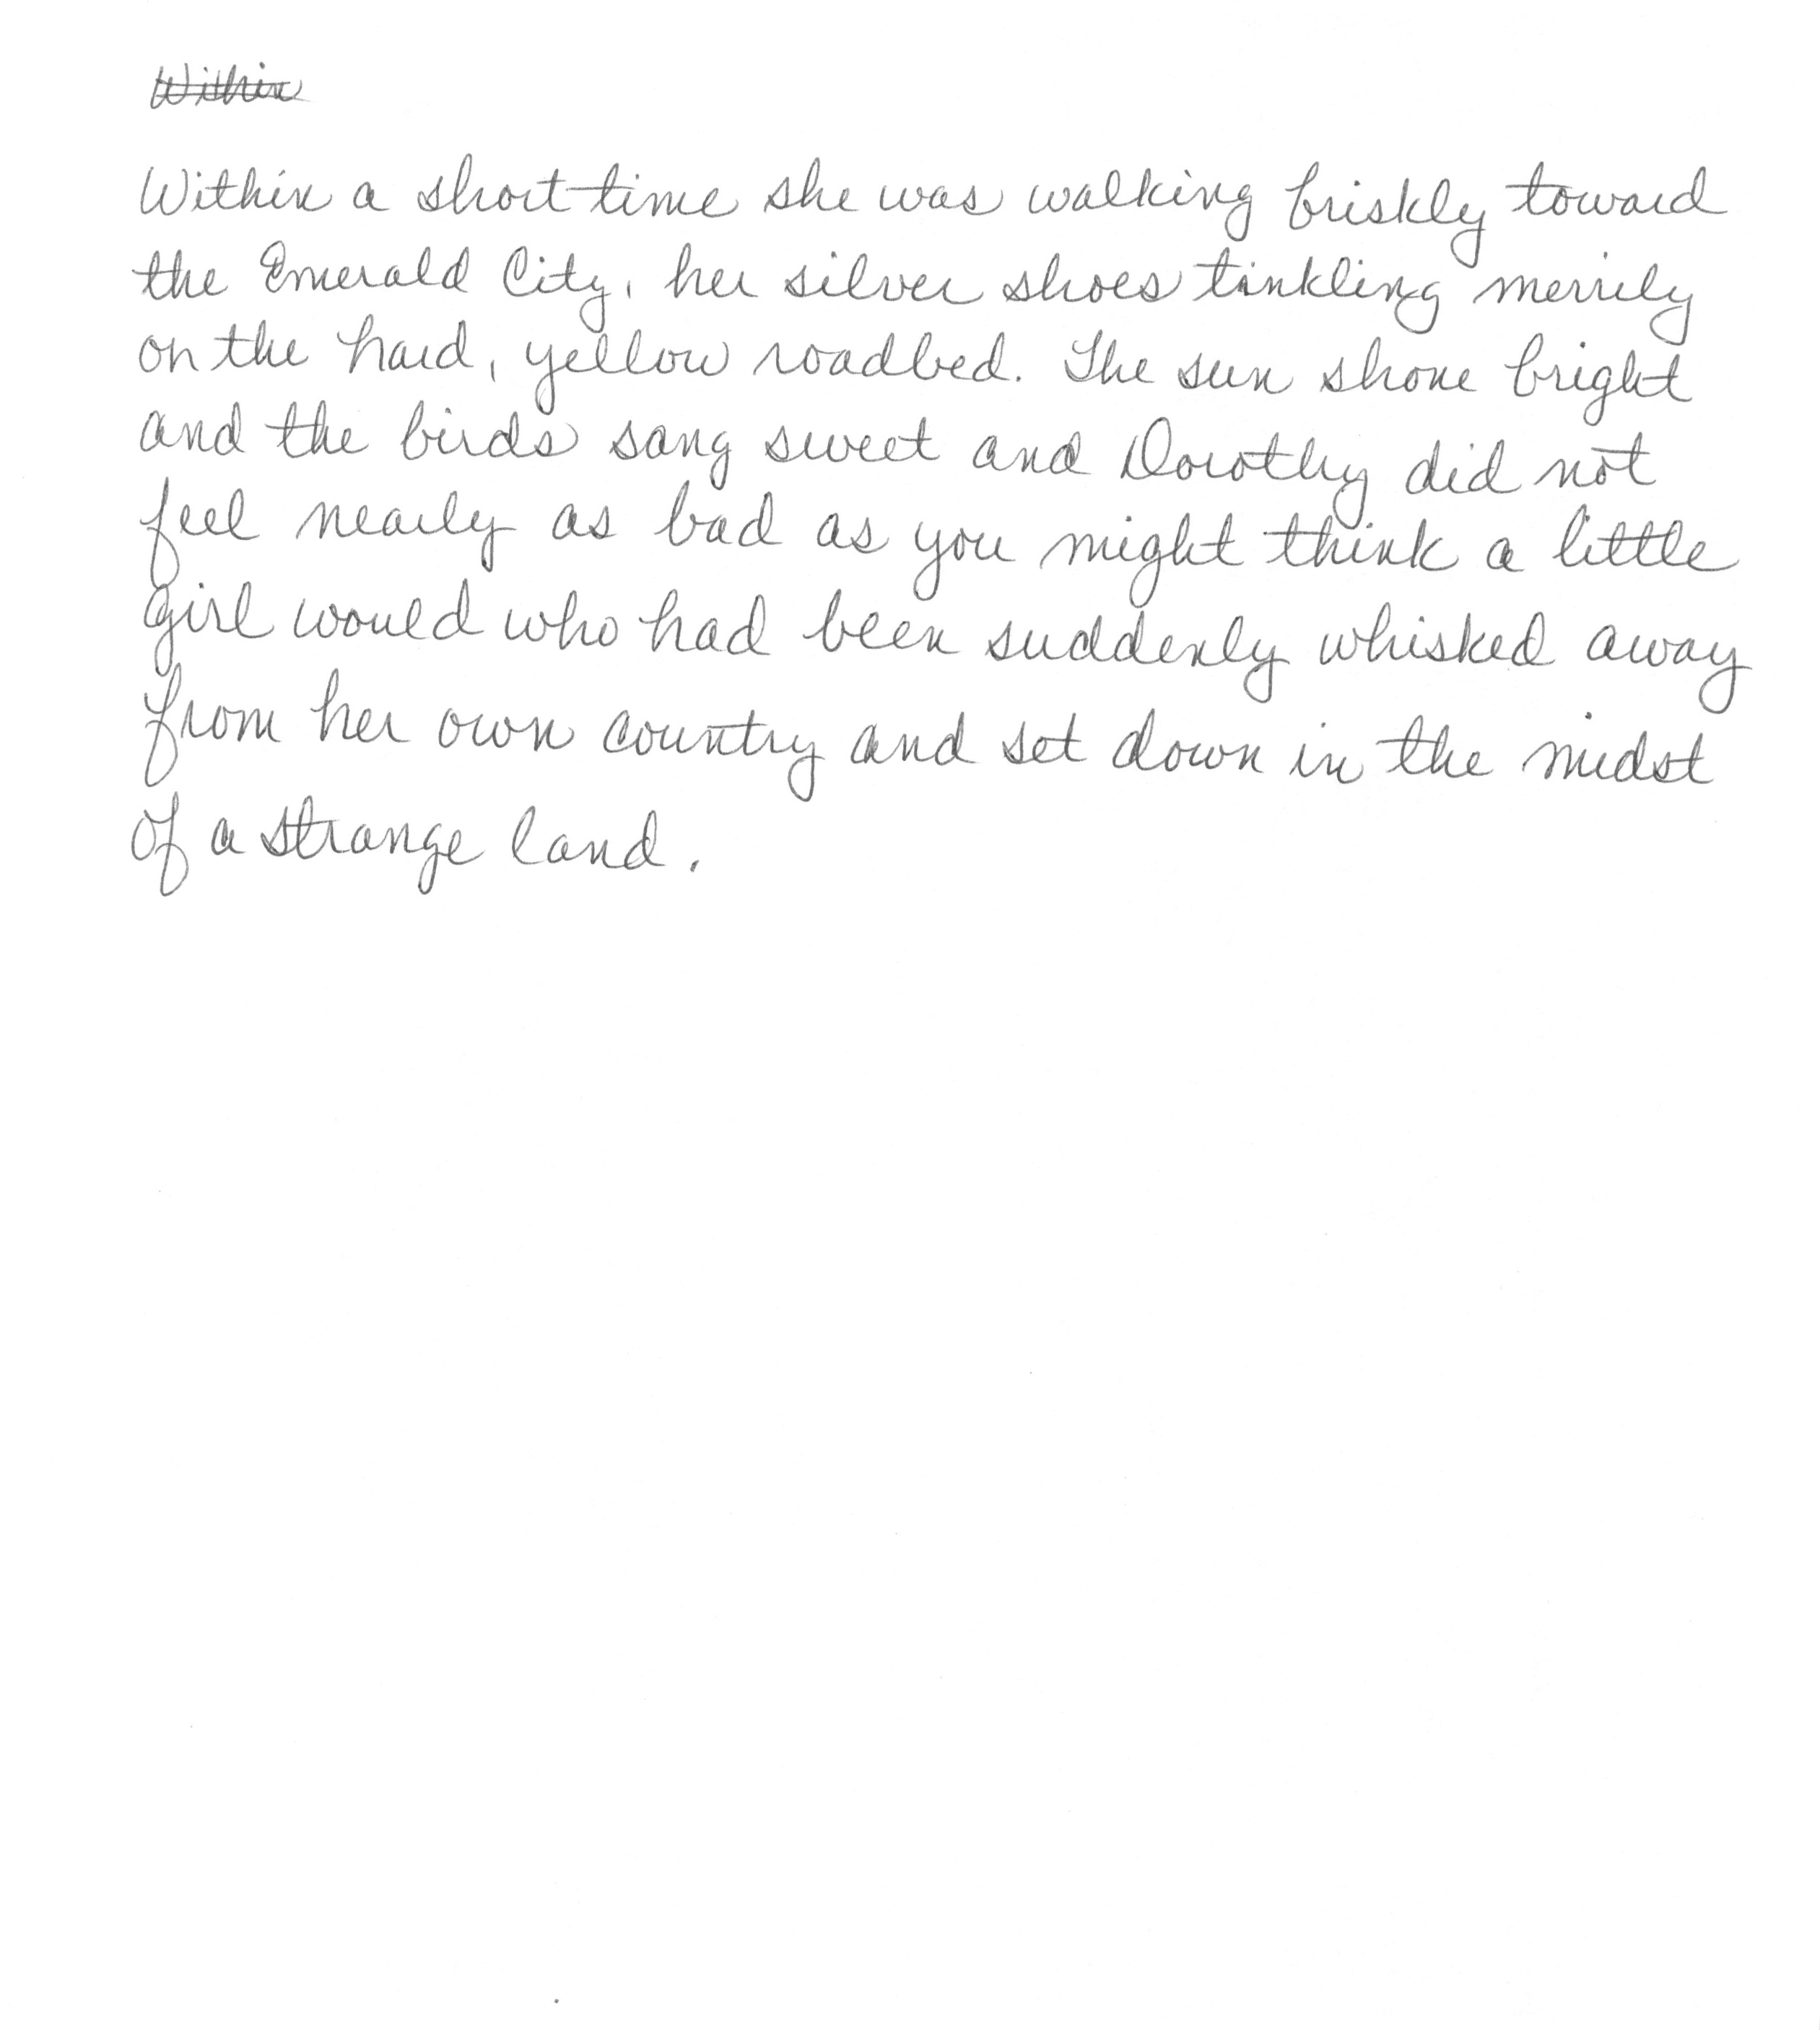 Within
Within a short time she was walking briskly toward
the Emerald City, her silver shoes tinkling merrily
on the hard, yellow roadbed. The sun shone bright
and the birds sang sweet and Dorothy did not
feel nearly as bad as you might think a little
girl would who had been suddenly whisked away
from her own country and set down in the midst
of a strange land.